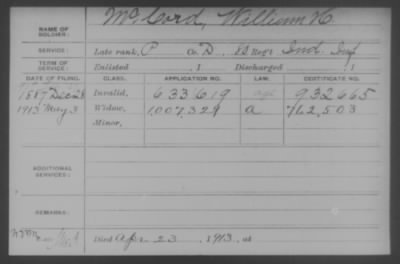 NAME OF SOLDIER: McCord, William H.
SERVICE: Late rank, P Co. D, 88 Reg't Ind. Inf
TERM OF SERVICE: Enlisted , 1 Discharged , 1
DATE OF FILING. CLASS. APPLICATION NO. LAW. CERTIFICATE NO.
1887 Dec 28 Invalid, 633619 932665
1913 May 3 Widow, 1,007,329 a 762,503
Minor,
ADDITIONAL SERVICES:
REMARKS:
Died Apr 23, 1913, at